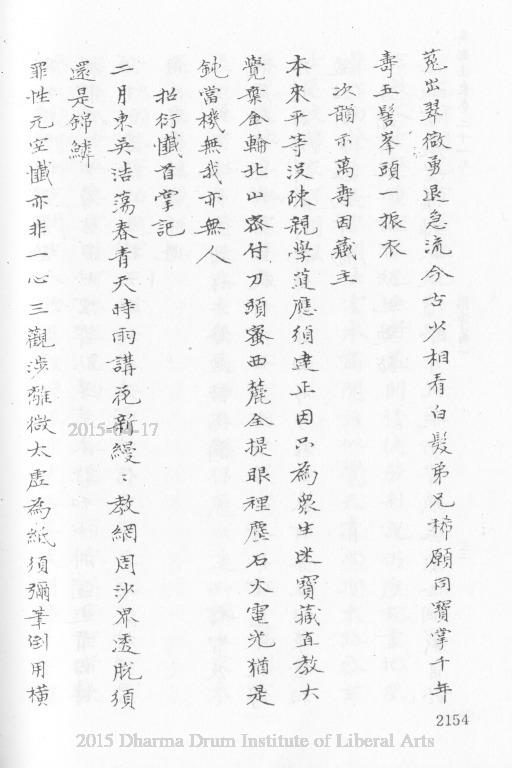 菟出翠微勇退急流今古少相看白髮弟兄稀願同寶掌千年
壽五髻峯頭一振衣
次韻示萬壽因藏主
本來平等沒疎親學道應須達正因只為衆生迷寶藏直教大
覺棄金輪北山密付刀頭蜜西麓全提眼裡塵石火電光猶是
鈍當機無我亦無人
招衍懺首掌記
二月東吳浩蕩春青天時雨講花新縵〻教網周沙界透脫須
還是錦鱗
罪性元空懺亦非一心三觀涉離微太虛為紙須彌筆倒用橫
2154
2015-04-17
2015 Dharma Drum Institute of Liberal Arts